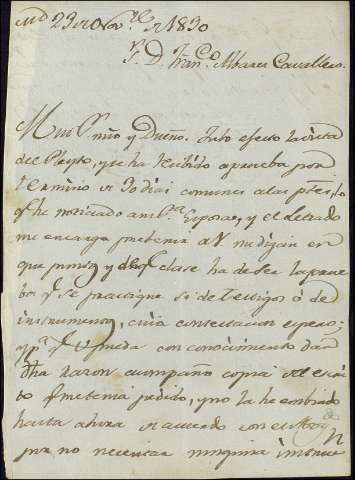 Md 23 de Nov.re de 1830
S.r D. Fran.co Alvarez Cavallero.
Mui S.or mio y Dueño. Tubo efecto la vista
del Pleyto, y se ha recibido a prueba por
termino de 30 dias comunes a las ptes, lo
q.e he noticiado a mi S.ra Esposa, y el Letrado
me encarga prebenir a V me digan en
que puntos y de q.e clase ha de ser la prue
ba q.e se practique si de testigos ó de
instrumentos, cuia contestacion espero;
y p.a q.e V pueda con conocimiento dar
dha razon acompaño copia del escri
to q.e me tenia pedido, y no la he embiado
hasta ahora de acuerdo con el
por no necesitar ninguna instruc